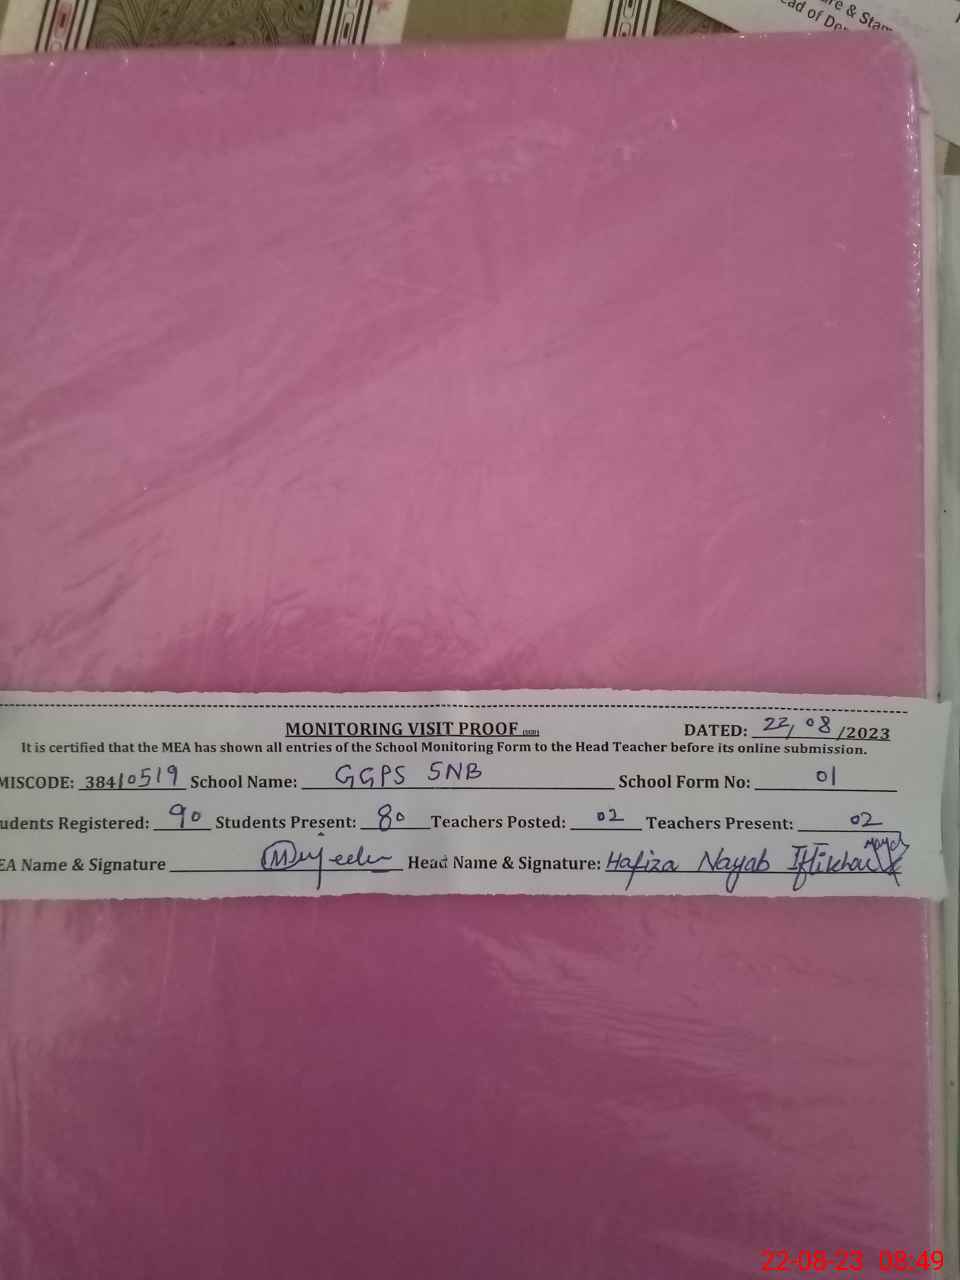 re & Stam
ad of De
MONITORING VISIT PROOF DATED: 22, 08 /2023
It is certified that the MEA has shown all entries of the School Monitoring Form to the Head Teacher before its online submission.
MISCODE: 38410519 School Name: GGPS 5NB School Form No: 01
udents Registered: 90 Students Present: 80 Teachers Posted: 02 Teachers Present: 02
EA Name & Signature Head Name & Signature: Hafiza Nayab Iftikhar
22-08-23 08:49